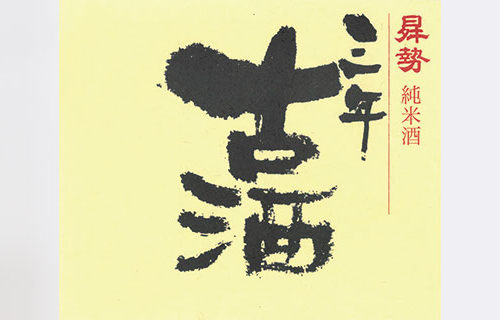 昇勢
純米酒
三年
古酒